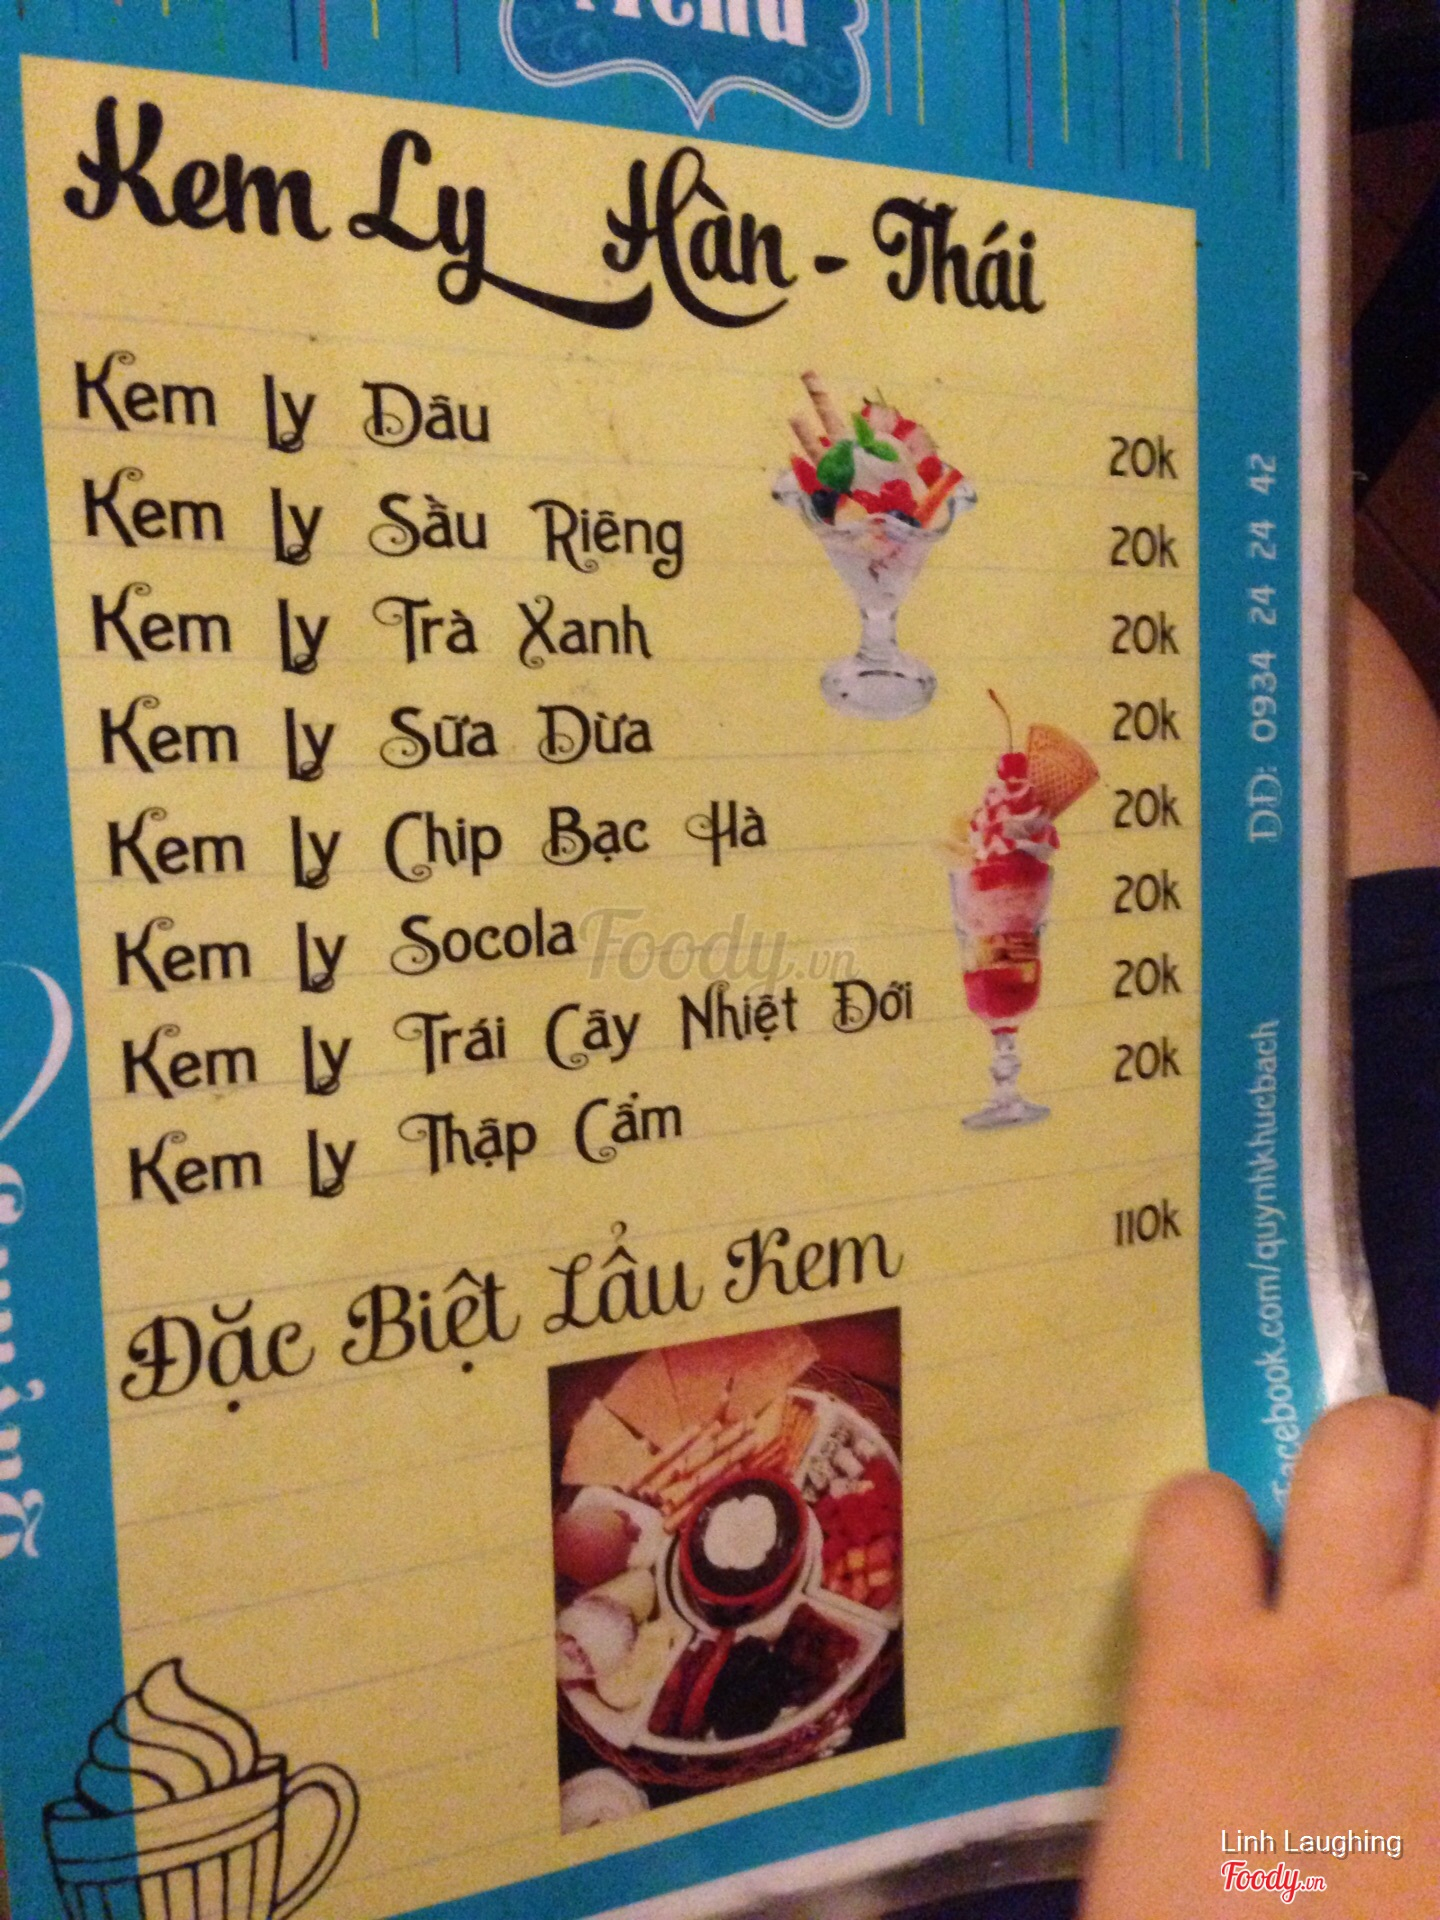 Menu
Kem Ly Hàn - Thái
Kem Ly Dâu 20k
Kem Ly Sầu Riêng 20k
Kem Ly Trà Xanh 20k
Kem Ly Sữa Dừa 20k
Kem Ly Chip Bạc Hà 20k
Kem Ly Socola 20k
Kem Ly Trái Cây Nhiệt Đới 20k
Kem Ly Thập Cẩm 20k
Đặc Biệt Lẩu Kem 110k
DĐ: 0934 24 24 42
Facebook.com/quynhkhucbach
Foody.vn
Linh Laughing
Foody.vn